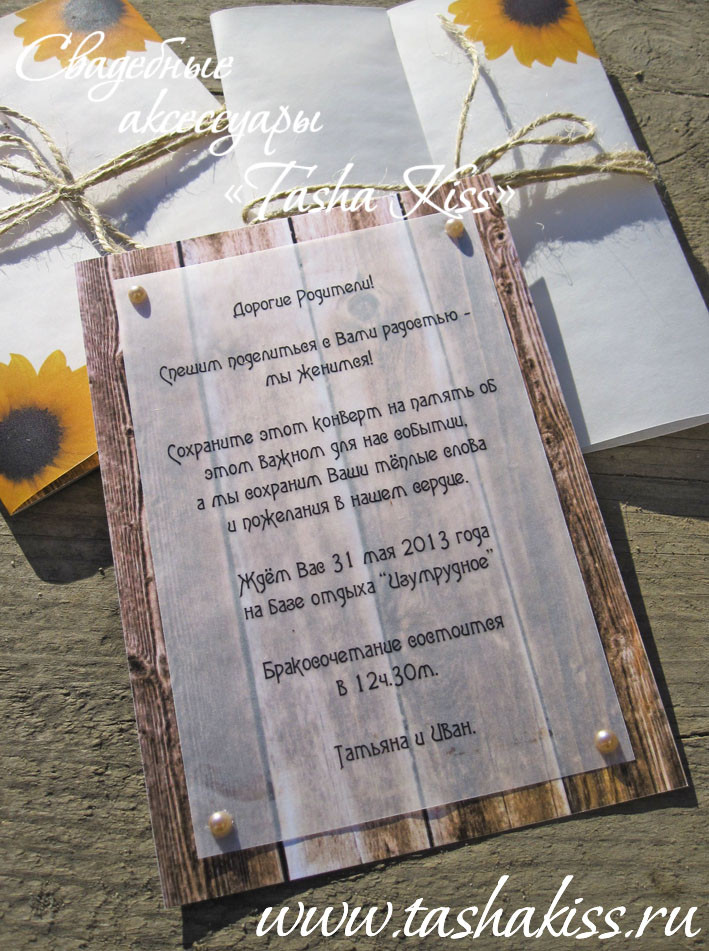 Свадебные
аксессуары
«Tasha Kiss»
Дорогие Родители!
Спешим поделиться с Вами радостью -
мы женимся!
Сохраните этот конверт на память об
этом важном для нас событии,
а мы сохраним Ваши тёплые слова
и пожелания в нашем сердце.
Ждём Вас 31 мая 2013 года
на Базе отдыха "Изумрудное"
Бракосочетание состоится
в 12ч.30м.
Татьяна и Иван.
www.tashakiss.ru